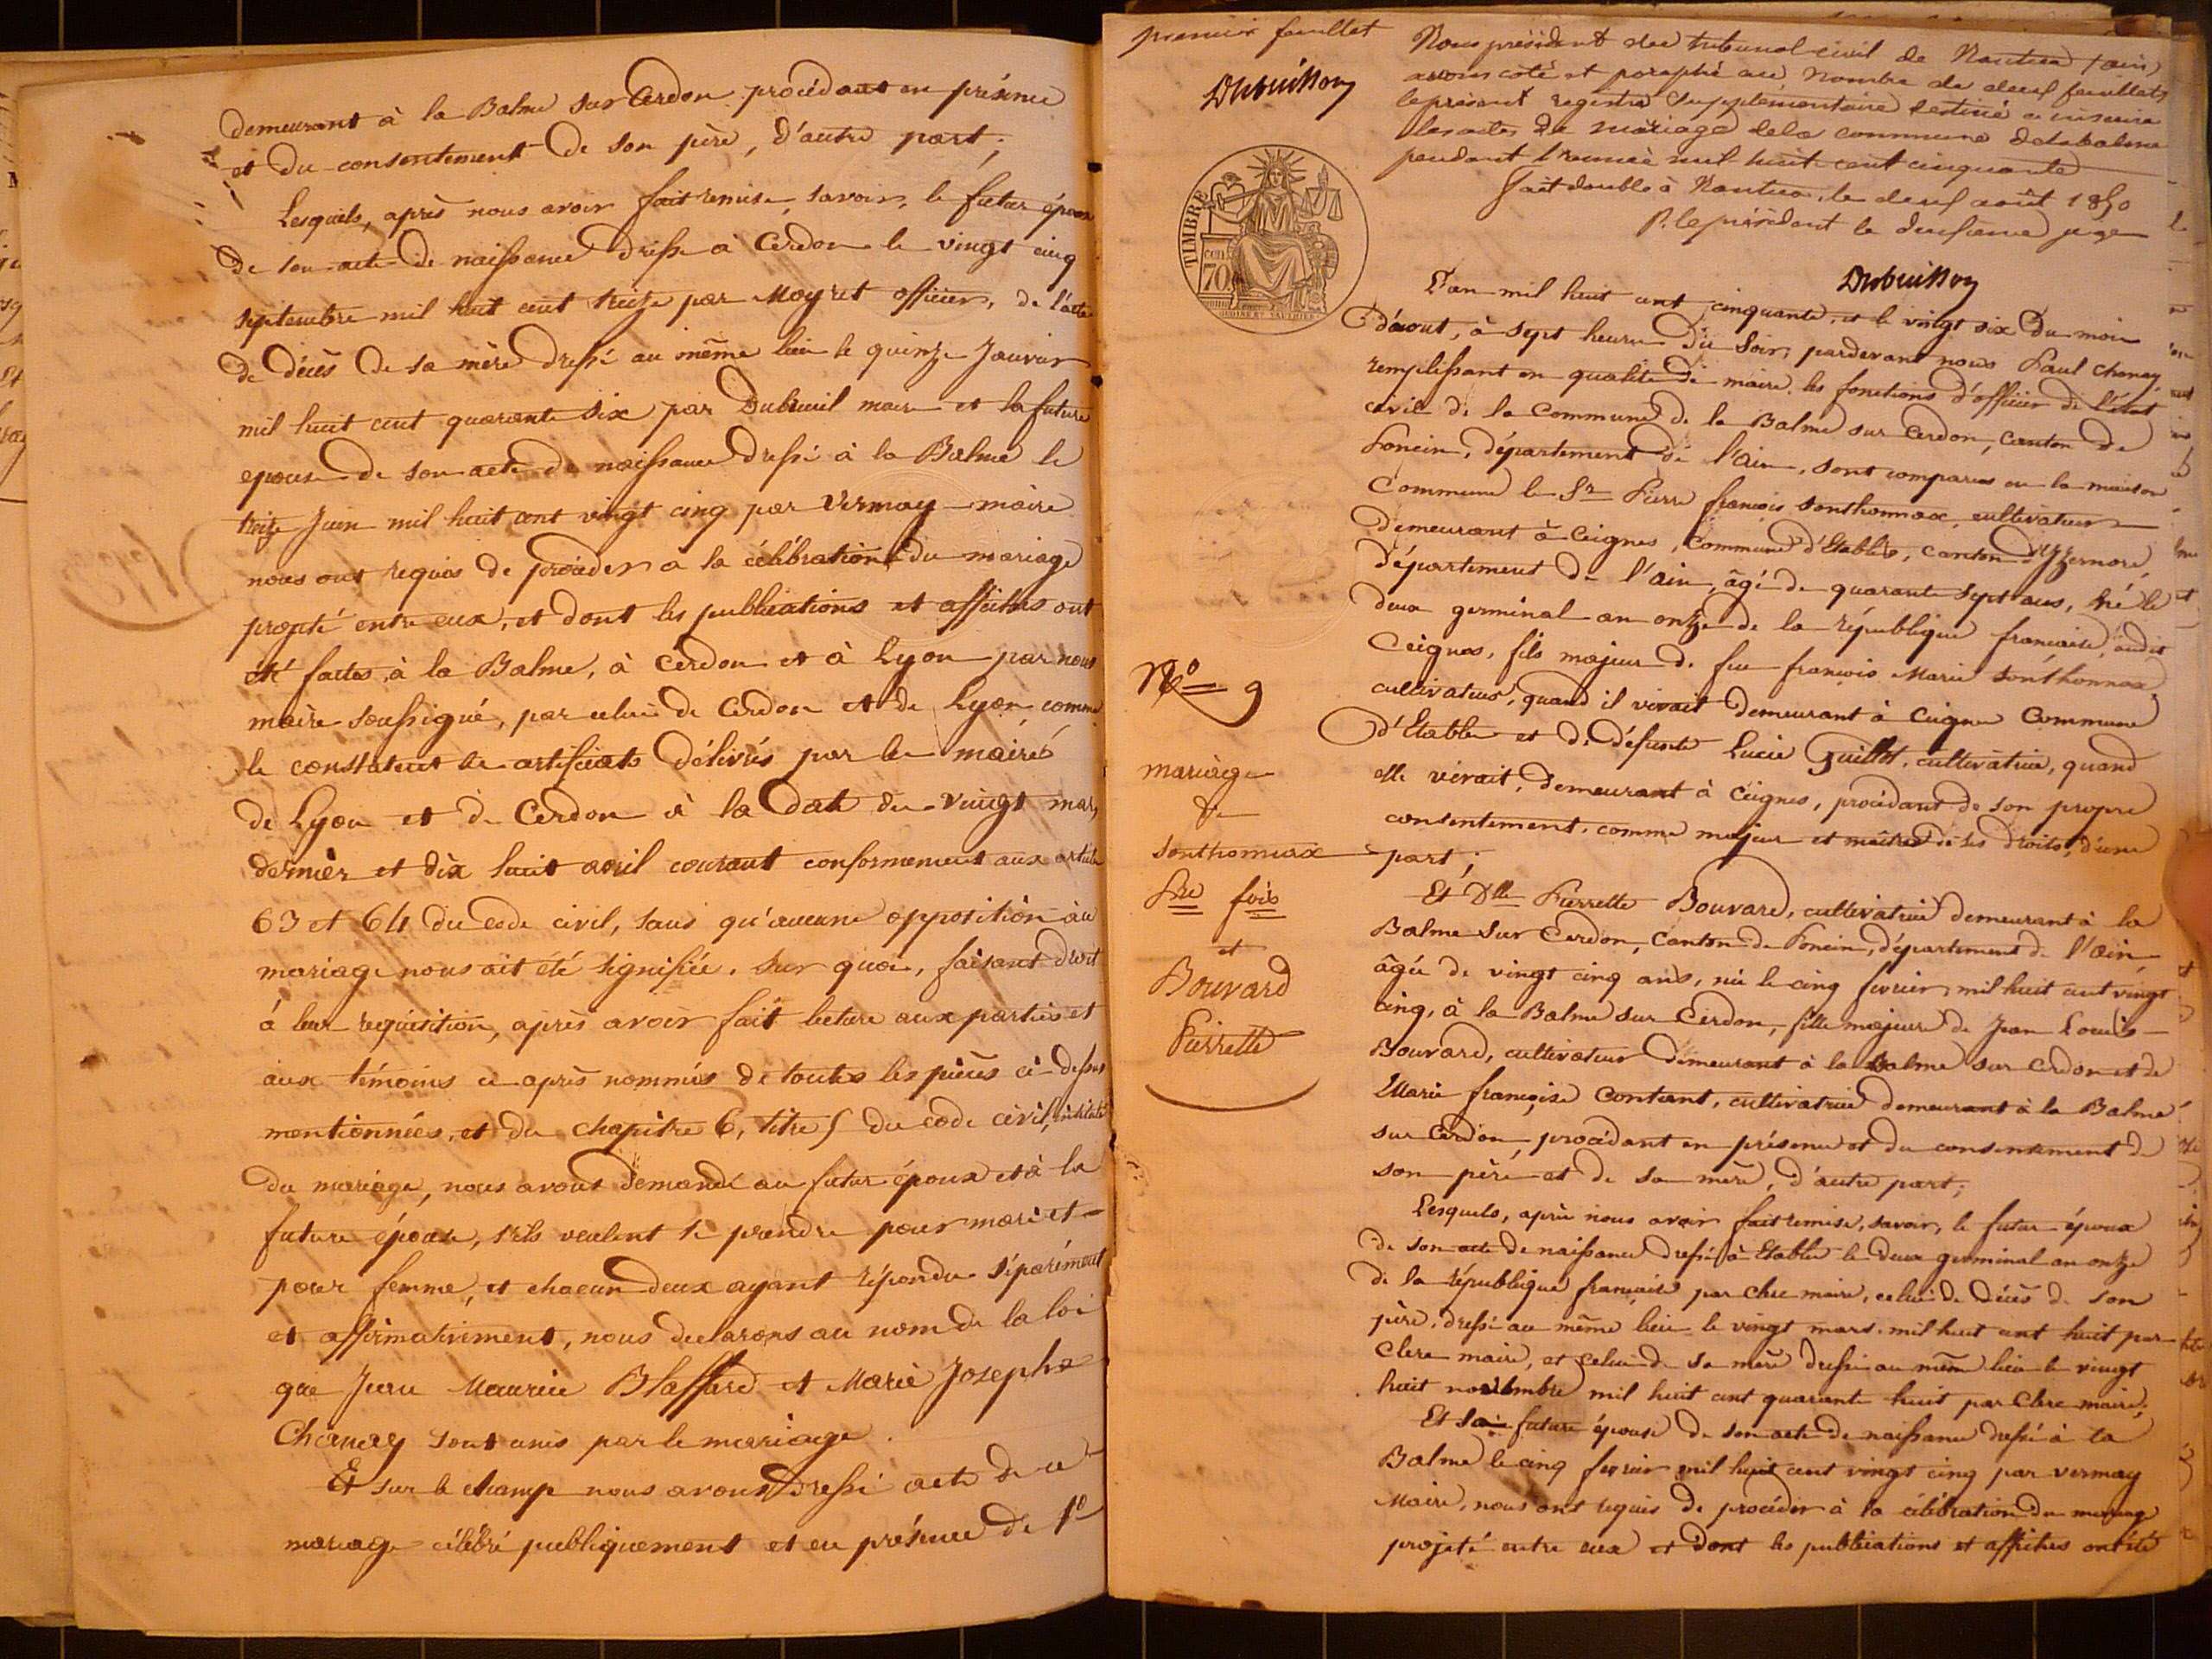 demeurant à la Balme sur Cerdon procédant en présence
et du consentement de son père, d'autre part;
Lesquels, après nous avoir fait remise, savoir, le futur époux
de son acte de naissance dressé à Cerdon le vingt cinq
septembre mil huit cent treize par Moyret officier, de l'acte
de décès de sa mère dressé au même lieu le quinze Janvier
mil huit cent quarante six par Dubreuil maire et la future
epouse de son acte de naissance dressé à la Balme le
treize Juin mil huit cent vingt cinq par Vermay maire
nous ont requis de procéder à la célébration du mariage
projeté entre eux, et dont les publications et affiches ont
été faites, à la Balme, à Cerdon et à Lyon par nous
maire soussigné, par celui de Cerdon et de Lyon comme
le constatent les certificats délivrés par les maires
de Lyon et de Cerdon à la date du vingt mars
dernier et dix huit avril courant conformement aux articles
63 et 64 du code civil, sans qu'aucune opposition au
mariage nous ait été signifiée. Sur quoi, faisant droit
à leur requisition, après avoir fait lecture aux parties et
aux témoins ci après nommés de toutes les pièces ci-dessus
mentionnées, et du chapitre 6, titre 5 du code civil, intitulé
du mariage, nous avons demandé au futur époux et à la
future épouse, s'ils veulent se prendre pour mari et
pour femme, et chacun deux ayant répondu séparément
et affirmativement, nous declarons au nom de la loi
que Jean Maurice Blaffard et Marie Josephe
Chanay sont unis par le mariage.
Et sur le champ nous avons dressé acte de ce
mariage célébré publiquement et en présence de 1º
premier feuillet
Dubuisson
Nous président du tribunal civil de Nantua (ain)
avons coté et paraphé au nombre de deux feuillets
le présent registre supplémentaire destiné a inscrire
les actes de mariage de la commune de labalme
pendant l'année mil huit cent cinquante
fait double à Nantua, le deux août 1850
P. le président le deuxieme juge
Dubuisson
TIMBRE
70
L'an mil huit cent cinquante, et le vingt six du mois
d'aout, à sept heures du soir, pardevant nous Paul Chanay,
remplissant en qualité de maire les fonctions d'officier de l'état
civil de la Commune de la Balme sur Cerdon, canton de
Poncin, département de l'Ain, sont comparus en la maison
Commune le Sr Pierre françois Sonthonnax, cultivateur
demeurant à Ceignes, Commune d'Etables, canton d'Yzernore,
département de l'ain, âgé de quarante sept ans, né le
deux germinal an onze de la république francaise, audit
Ceignes, fils majeur de feu françois Marie Sonthonnax,
cultivateur, quand il vivait demeurant à Ceignes Commune
d'Etables et de défunte Lucie Guillot, cultivatrice, quand
elle vivait, demeurant à Ceignes, procédant de son propre
consentement, comme majeur et maître de ses droits, d'une
part;
Nº 9
mariage
de
Sonthonnax
Pre fois
et
Bouvard
Pierrette
Et Dlle Pierrette Bouvard, cultivatrice demeurant à la
Balme sur Cerdon, Canton de Poncin, département de l'Ain,
âgée de vingt cinq ans, née le cinq fevrier mil huit cent vingt
cinq, à la Balme sur Cerdon, fille majeure de Jean Louis
Bouvard, cultivateur demeurant à la Balme sur Cerdon et de
Marie françoise Contant, cultivatrice demeurant à la Balme
sur Cerdon, procédant en présence et du consentement de
son père et de sa mère, d'autre part;
Lesquels, après nous avoir fait remise, savoir, le futur époux
de son acte de naissance dressé à Etables le deux germinal an onze
de la république française par Clerc maire, celui de décès de son
père, dressé au même lieu le vingt mars mil huit cent huit par
Clerc maire, et celui de sa mère dressé au même lieu le vingt
huit novembre mil huit cent quarante huit par Clerc maire;
Et sa future épouse de son acte de naissance dressé à la
Balme le cinq fevrier mil huit cent vingt cinq par vermay
Maire, nous ont requis de procéder à la célébration du mariage
projeté entre eux et dont les publications et affiches ont été